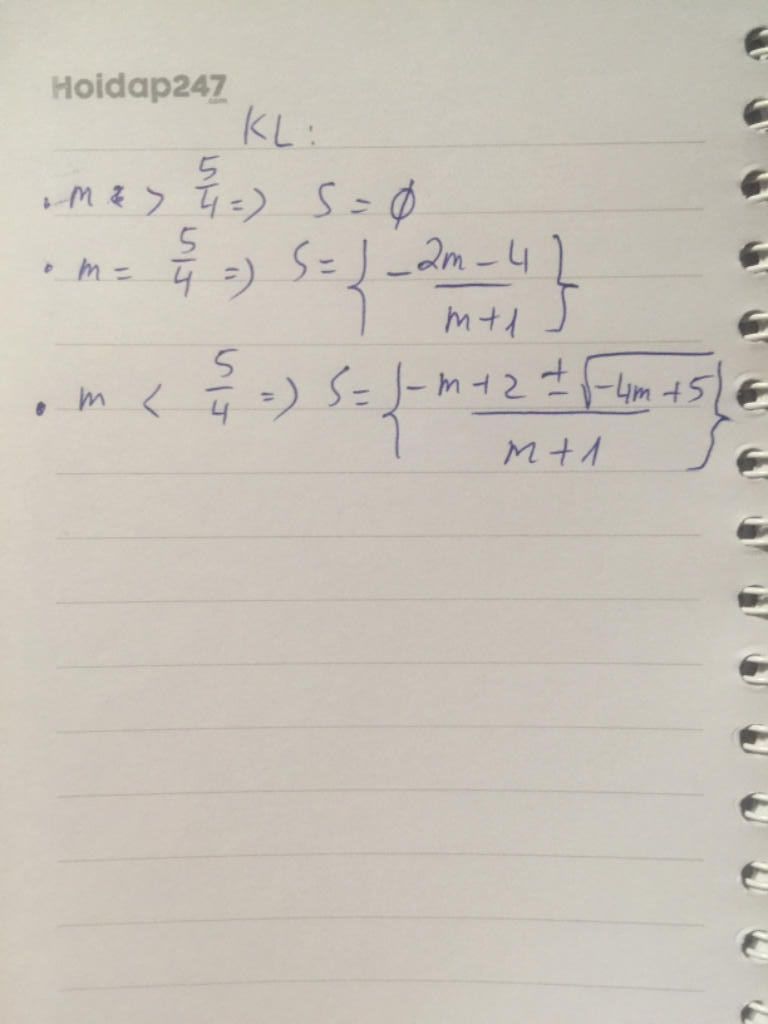 Hoidap247
.com
KL:
. m > 5/4 => S = ∅
. m = 5/4 => S = { -2m - 4 / m + 1 }
. m < 5/4 => S = { -m + 2 ± √-4m + 5 / m + 1 }